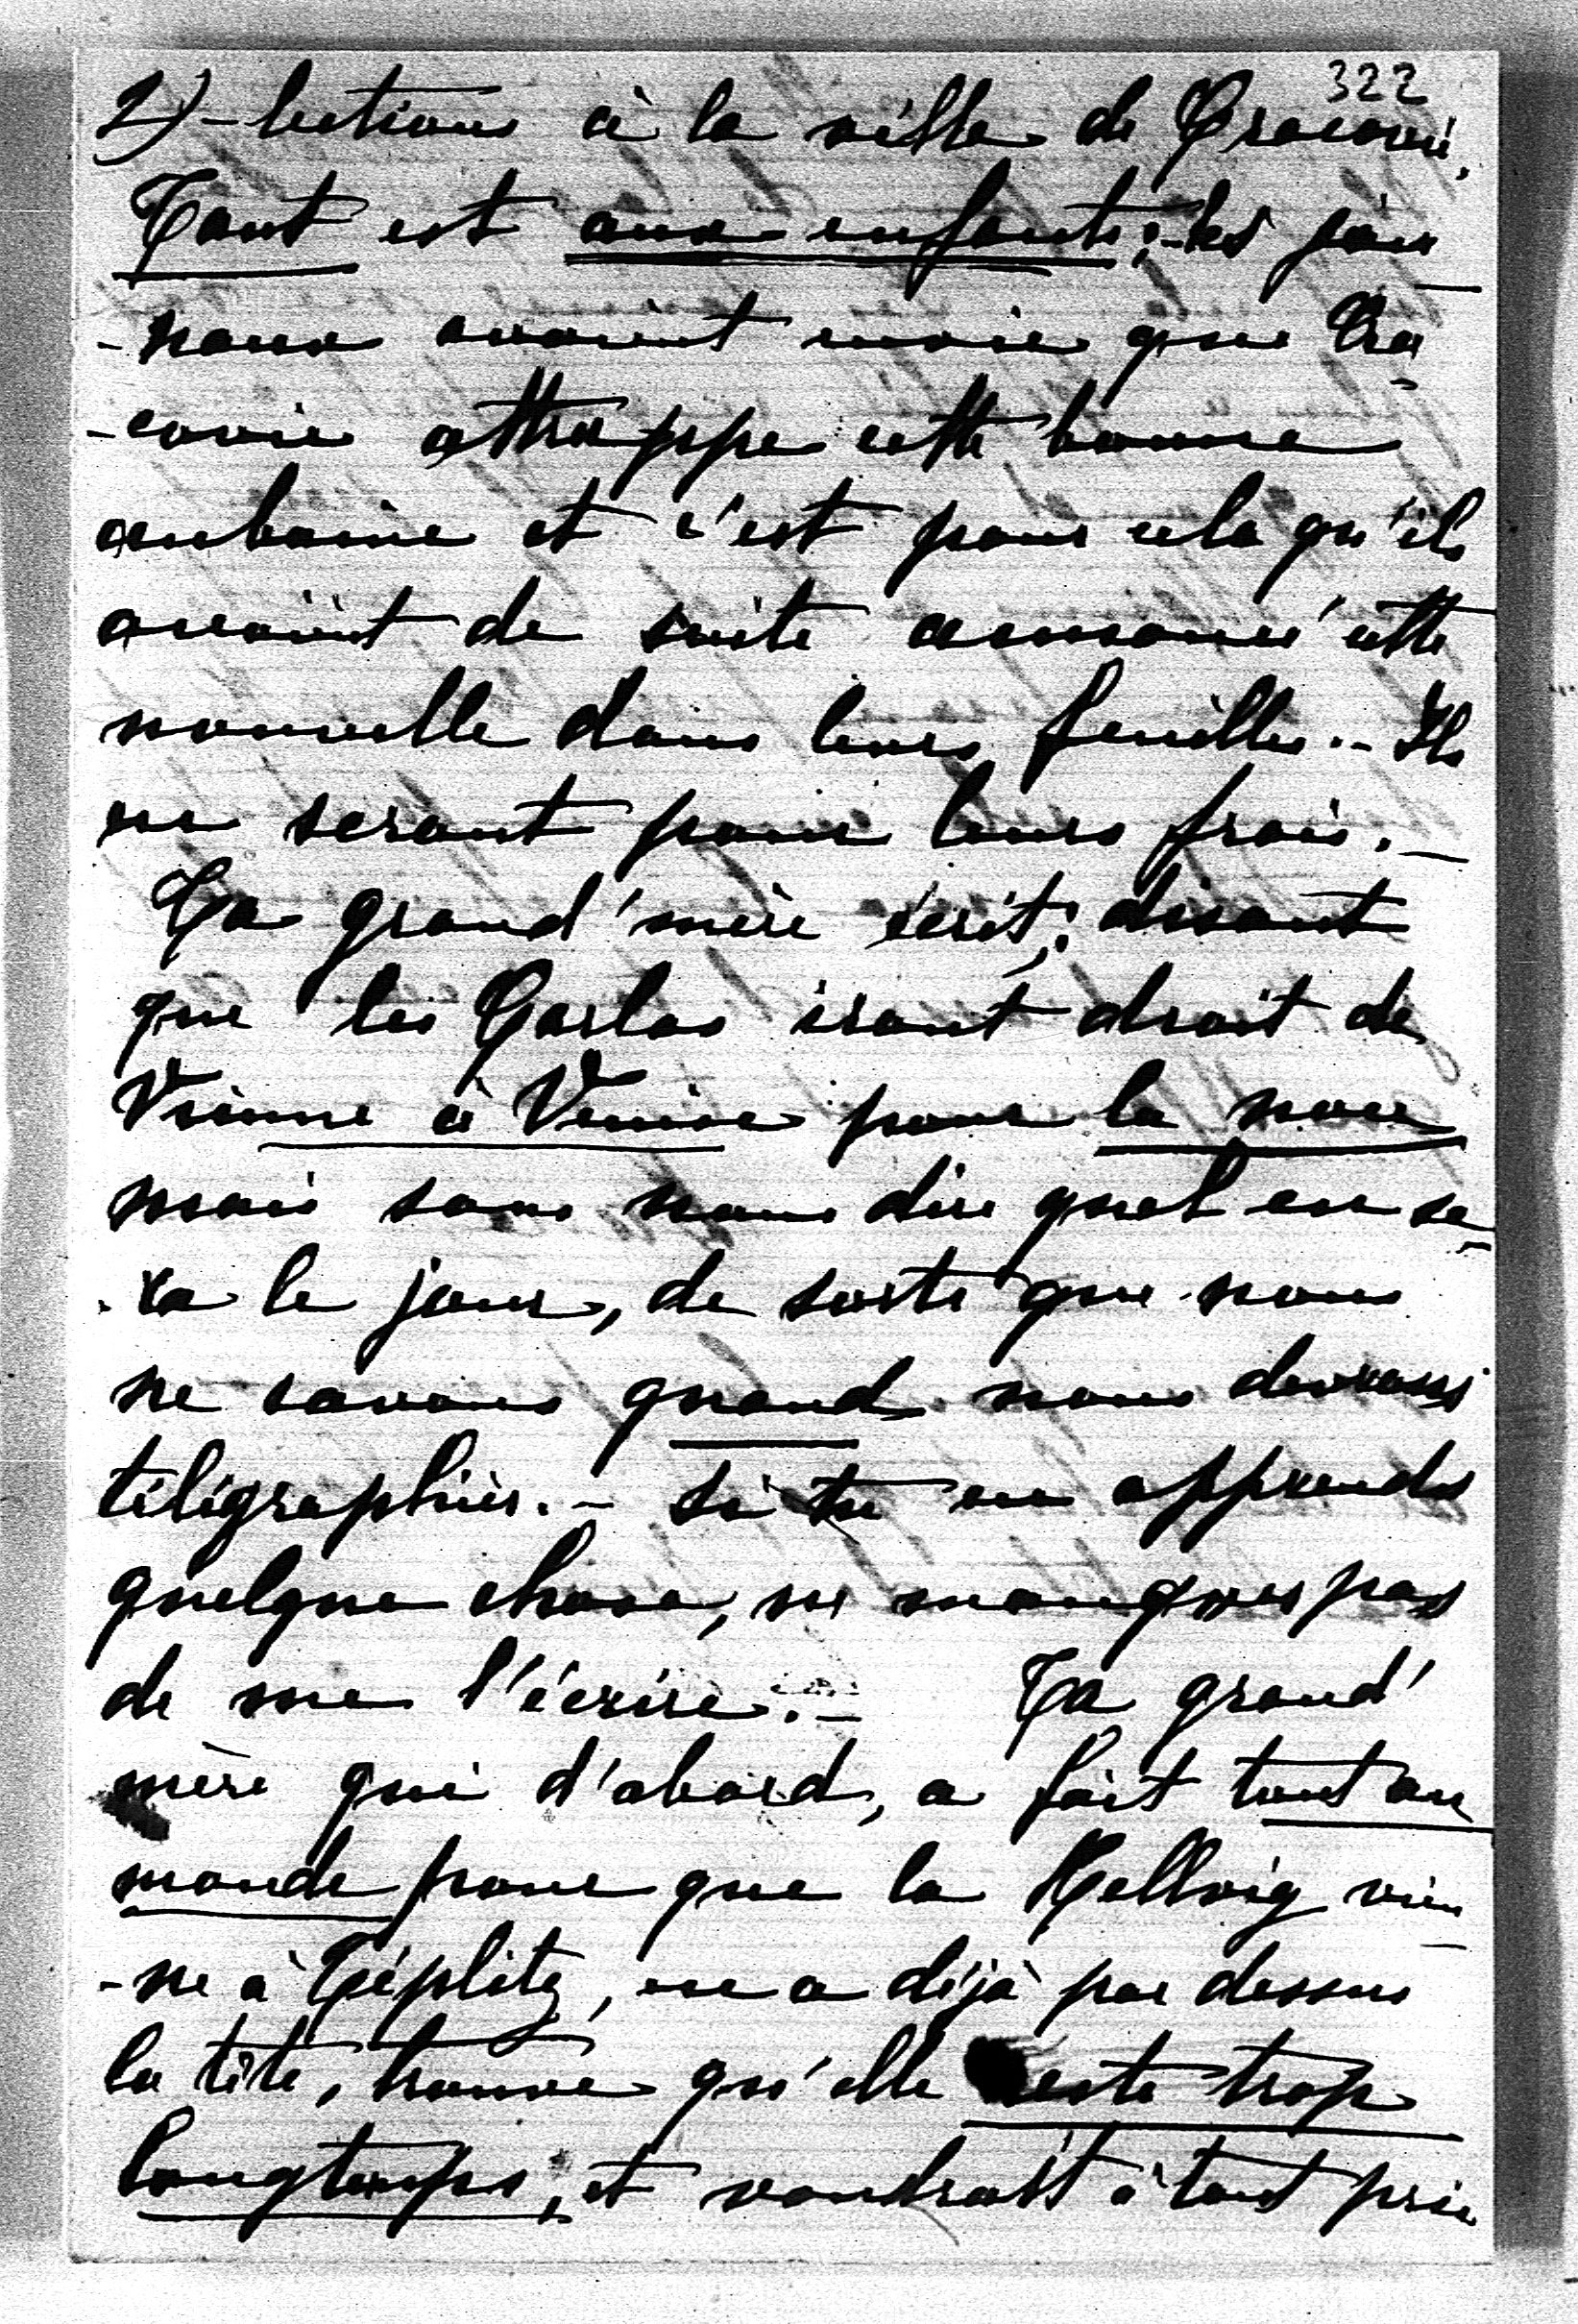 322
2) -lections à la ville de Cracovie.
Tout est aux enfants; - les jour
-naux avaient envie que Cra
-covie attrappe cette bonne
aubaine et c'est pour cela qu'ils
avaient de suite annoncé cette
nouvelle dans leurs feuilles.. - Ils
en seront pour leurs frais. -
Ta grand'mère écrit; disant
que les Carlos iront droit de
Vienne à Venise pour la noce
mais sans nous dire quel en se
-ra le jour, de sorte que nous
ne savons quand nous devrons
télégraphier. - Si tu en apprends
quelque chose, ne manques pas
de me l'écrire. - Ta grand'
mère qui d'abord, a fait tout au
monde pour que la Hellwig vien
-ne à Téplitz, en a déjà par dessus
la tête, trouve qu'elle reste trop
longtemps, et voudrait à tout prix